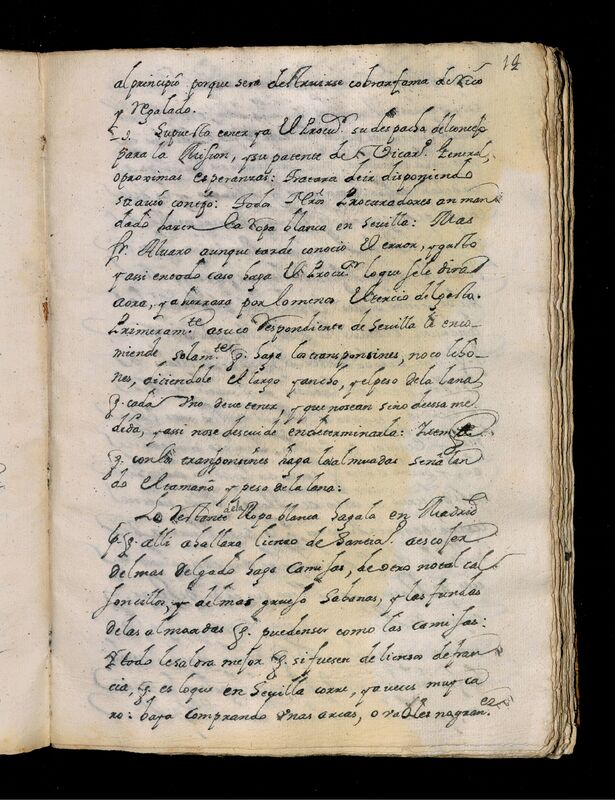 14
al principio porque sera destruirse cobrar fama de Rico
y Regalado.
Supuesto tener ya El Procur. su despacho del consejo
para la Mision, y su patente de Vicar.º General,
o proximas esperanzas: tratara de ir disponiendo
su avio consejo: todos Nros Procuradores an man
dado hacer la ropa blanca en Sevilla: Mas
fr. Alvaro aunque tarde conocio El error, y gasto
y assi en todo caso haga El Procur. lo que se le dira
aora, y ahorrara por lo menos El tercio del gasto.
Primeram.te a su correspondiente de Sevilla le enco-
miende solam.te q. haga los transportines, no colcho-
nes, diciendole El largo y ancho, y el peso de la lana
q. cada uno deve tener, y que no sean sino de essa me
dida, y assi no se descuide en determinarla: Item
q. con los transportines haga las almuadas señalan
do El tamaño y peso de la lana:
Lo Restante de la Ropa blanca hagala en Madrid
p. q. alli a hallara lienzo de Francia. a escoger
del mas delgado haga Camisas, de otro no tal cal-
soncillos, y del mas grueso Sabanas, y las fundas
de las almoadas q. pueden ser como las camisas:
y todo le saldra mejor q. si fuesen de lienzo de fran
cia, q. es lo que en Sevilla corre, y a veces muy ca
ro: vaya comprando unas arcas, o vaúles no gran.es